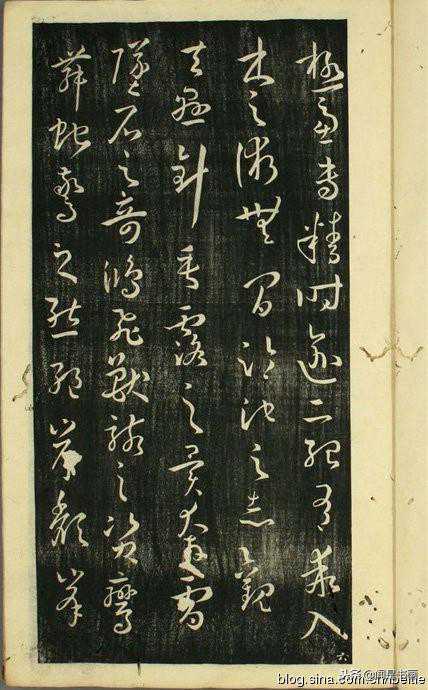 極慮專精時逾二紀有乖入
木之術無間臨池之志觀
夫懸針垂露之異奔雷
墜石之奇鴻飛獸駭之資鸞
舞蛇驚之態絕岸頹峰
blog.sina.com.cn/beitie